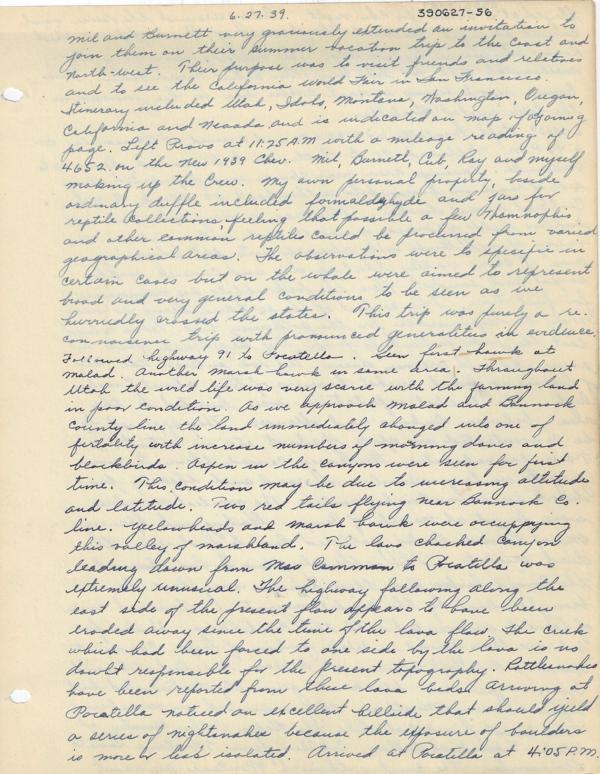 6.27.39.
390627-56
Mil and Burnett very graciously extended an invitation to
join them on their summer vacation trip to the Coast and
North west. Their purpose was to visit friends and relatives
and to see the California World Fair in San Francisco.
Itinerary included Utah, Idaho, Montana, Washington, Oregon,
California and Nevada and is indicated on map
page. Left Provo at 11:25 A.M with a mileage reading of
4652 on the New 1939 Chev. Mil, Burnett, Cub, Ray and myself
making up the Crew. My own personal property, beside
ordinary duffle included formaldehyde and jars for
reptile collections, feeling that possible a few Thamnophis
and other common reptiles could be procured from varied
geographical areas. The observations were to specific in
certain cases but on the whole were aimed to represent
broad and very general conditions to be seen as we
hurriedly crossed the states. This trip was purely a re-
connaisense trip with pronounced generalities in evidence.
Followed highway 91 to Pocatella. Seen first hawk at
Malad. Another marsh hawk in same area. Throughout
Utah the wild life was very scarce with the farming land
in poor condition. As we approach Malad and Bannock
County line the land immediately changed into one of
fertality with increase numbers of morning doves and
blackbirds. Aspen in the canyons were seen for first
time. This condition may be due to increasing altitude
and latitude. Two red tails flying near Bannock Co.
line. Yellowheads and marsh hawk were occuppying
this valley of marshland. The lava chocked canyon
leading down from Mas Cammon to Pocatella was
extremely unusual. The highway following along the
east side of the present flow appears to have been
eroded away since the time of the lava flow. The creek
which had been forced to one side by the lava is no
doubt responsible for the present topography. Rattlesnakes
have been reported from these lava beds. Arriving at
Pocatella noticed an excellent hillside that should yield
a series of nightsnakes because the exposure of boulders
is more or less isolated. Arrived at Pocatella at 4:05 P.M.